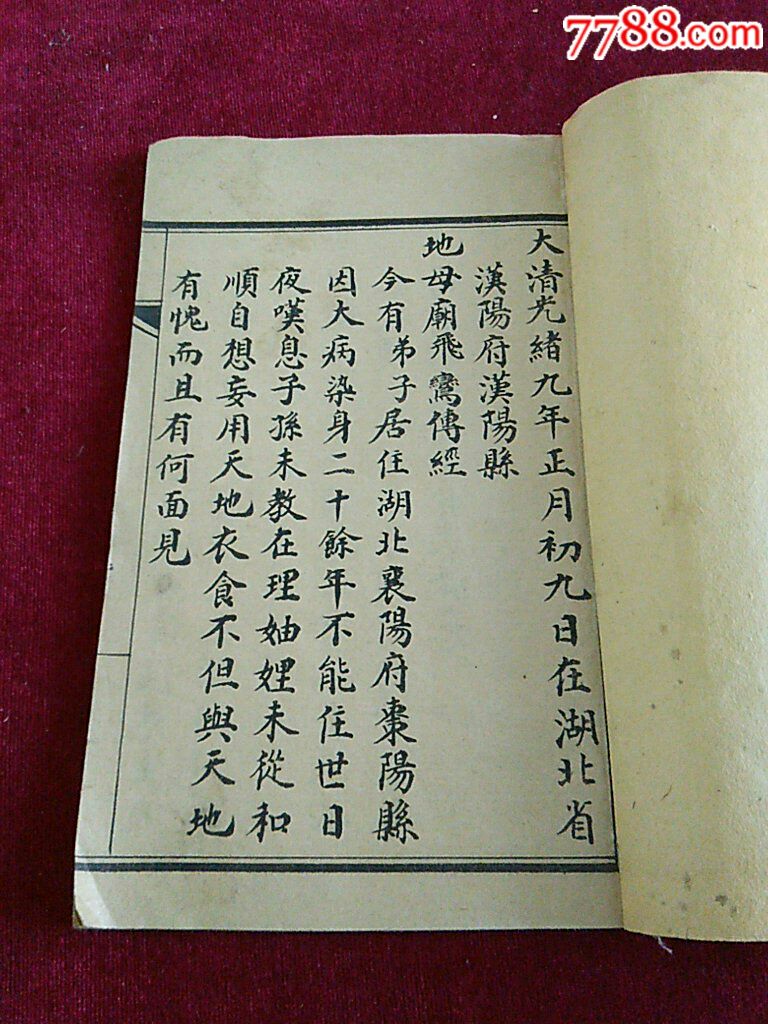 7788.com
大清光緒九年正月初九日在湖北省
漢陽府漢陽縣
地母廟飛鸞傳經
今有弟子居住湖北襄陽府棗陽縣
因大病染身二十餘年不能住世日
夜嘆息子孫未教在理妯娌未從和
順自想妄用天地衣食不但與天地
有愧而且有何面見